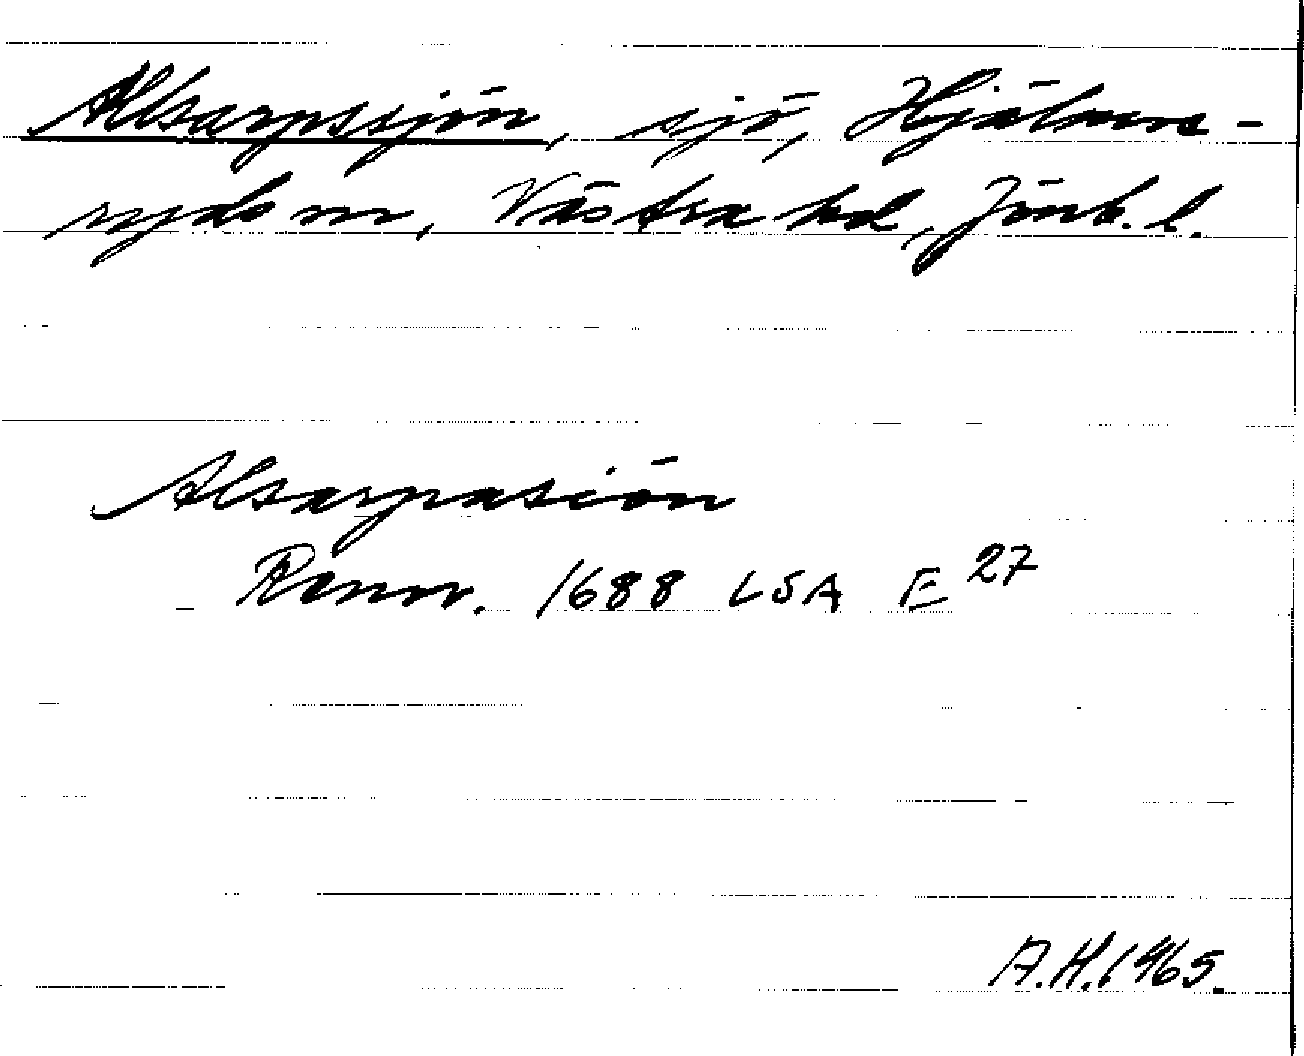 Alsarpssjön, sjö, Hjälms-
ryds sn, Västra hd, Jönk. l.
Alsarpasiön
Rann. 1688 LSA E 27
A.H. 1965.